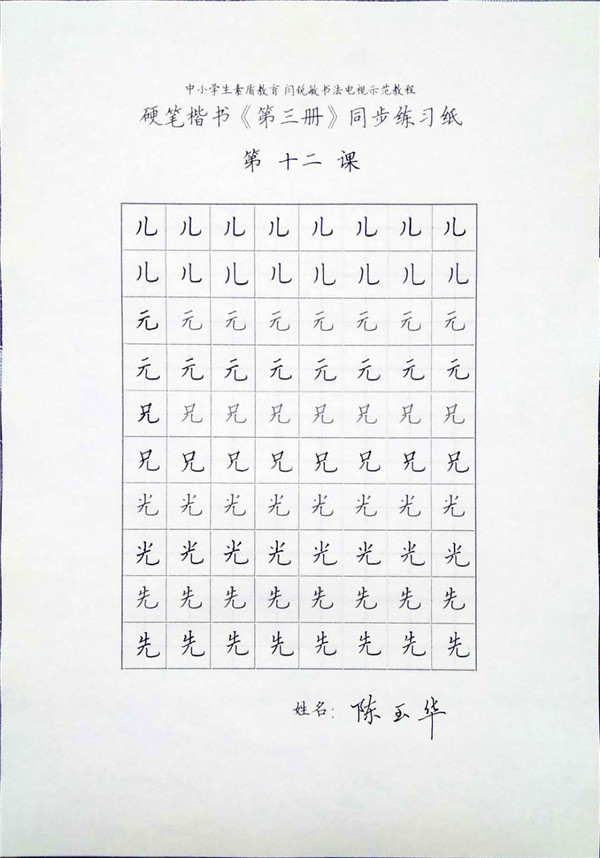 中小学生素质教育闫锐敏书法电视示范教程
硬笔楷书《第三册》同步练习纸
第 十二 课
儿 儿 儿 儿 儿 儿 儿 儿
儿 儿 儿 儿 儿 儿 儿 儿
元 元 元 元 元 元 元 元
元 元 元 元 元 元 元 元
兄 兄 兄 兄 兄 兄 兄 兄
兄 兄 兄 兄 兄 兄 兄 兄
光 光 光 光 光 光 光 光
光 光 光 光 光 光 光 光
先 先 先 先 先 先 先 先
先 先 先 先 先 先 先 先
姓名: 陈玉华